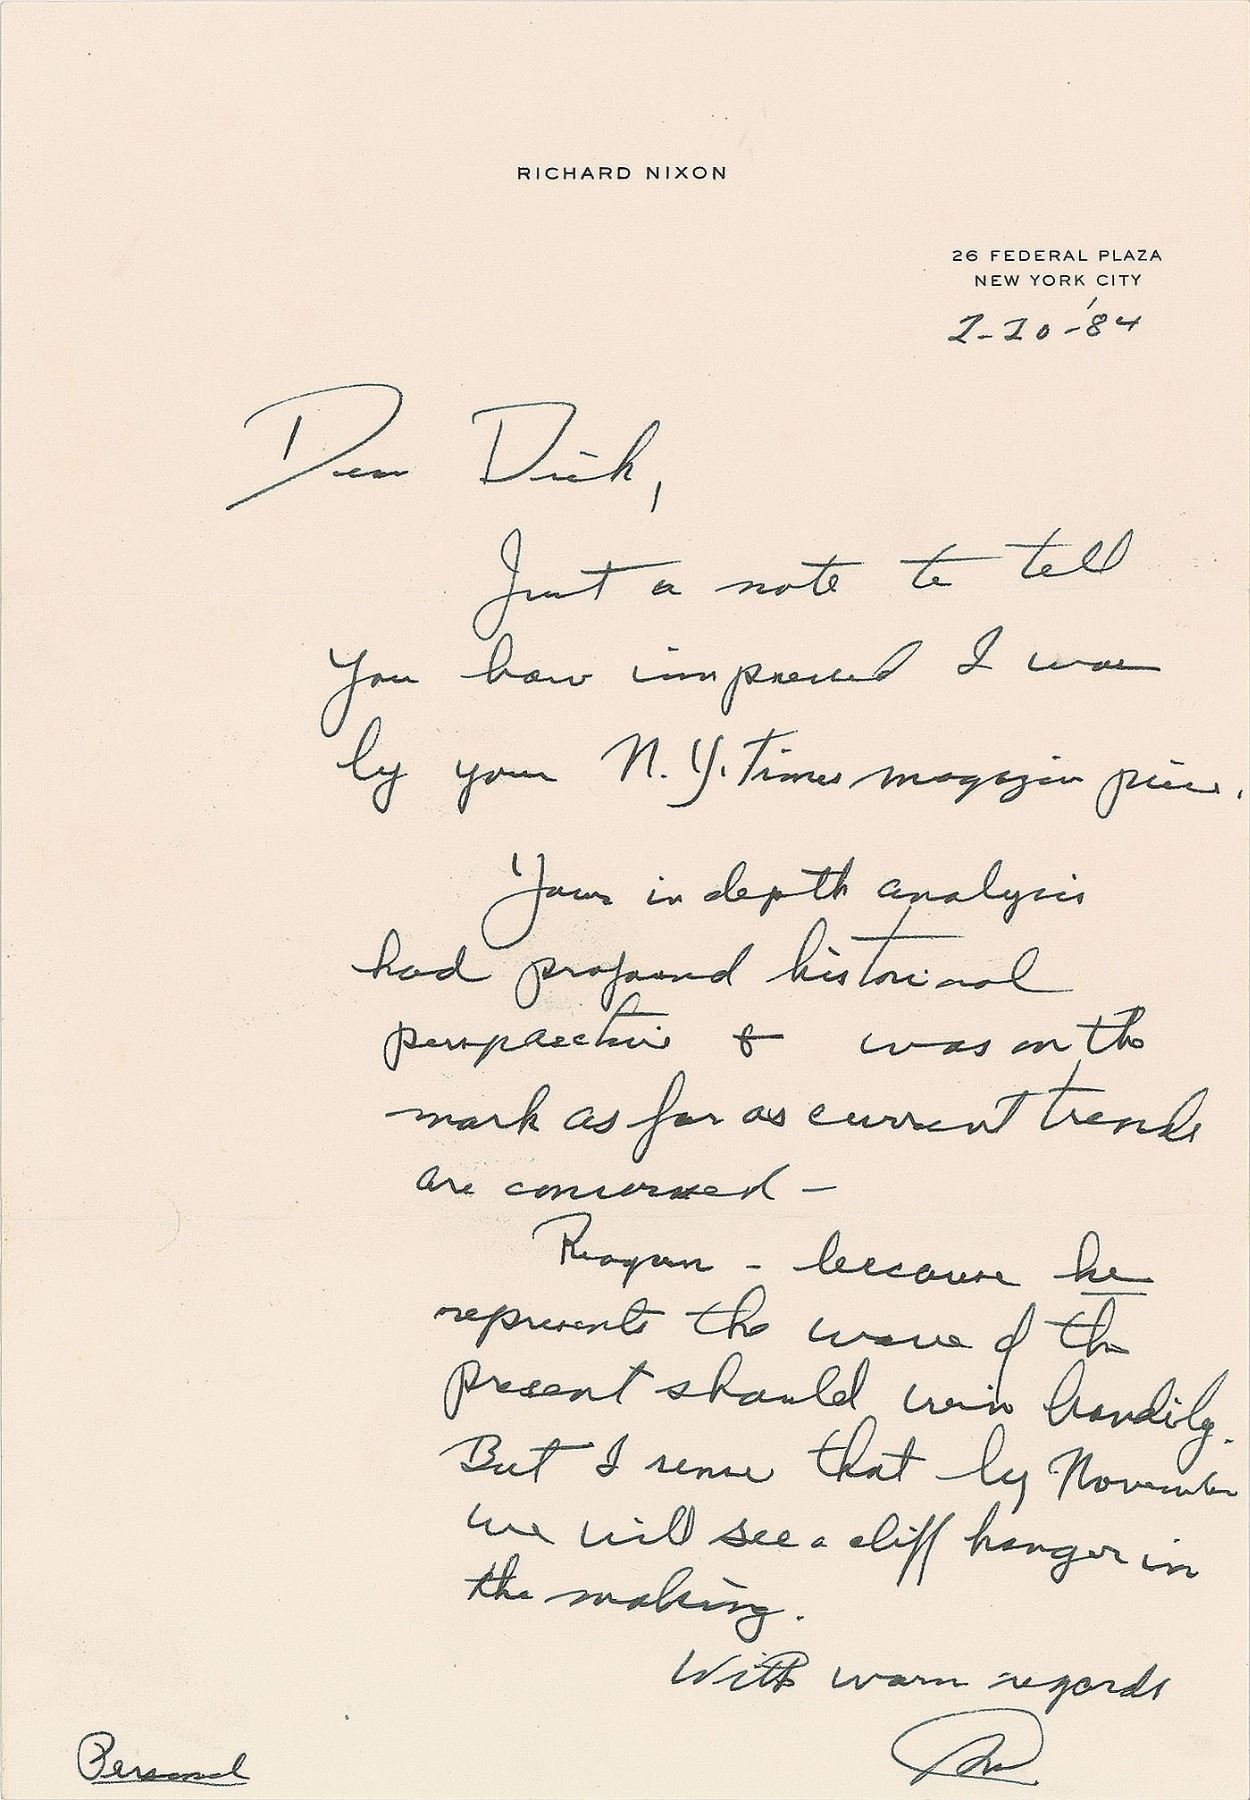 RICHARD NIXON
26 FEDERAL PLAZA
NEW YORK CITY
2-20-'84
Dear Dick,
Just a note to tell
you how impressed I was
by your N.Y. Times magazine piece.
Your in depth analysis
had profound historical
perspective & was on the
mark as far as current trends
are concerned -
Reagan - because he
represents the wave of the
present should win handily.
But I sense that by November
we will see a cliff hanger in
the making.
With warm regards
RN
Personal